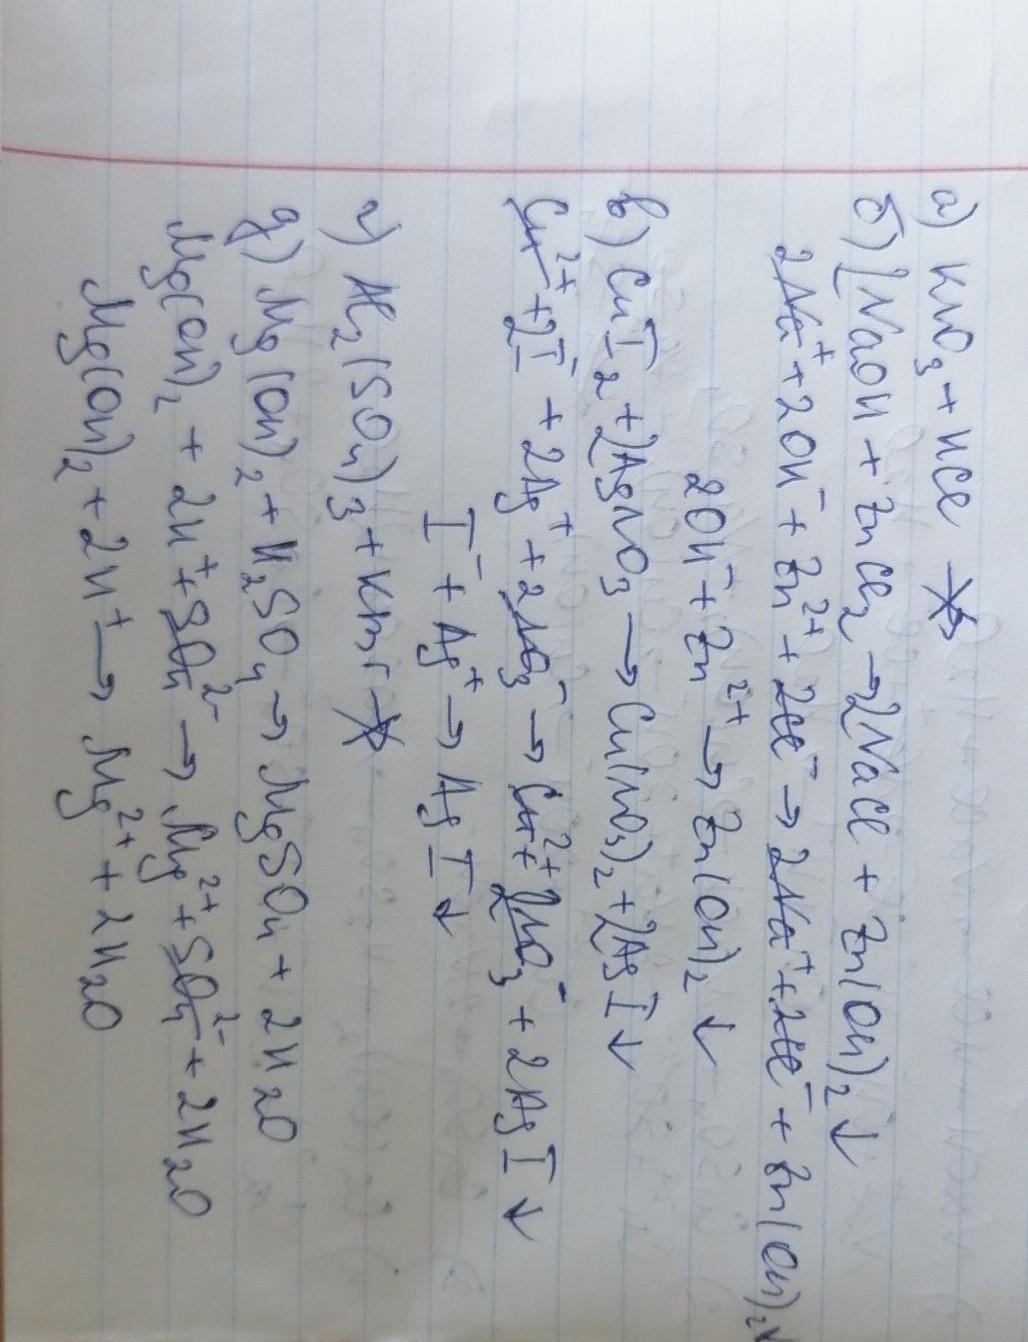 а) KNO₃ + HCl ↛
б) 2NaOH + ZnCl₂ → 2NaCl + Zn(OH)₂↓
2Na⁺ + 2OH⁻ + Zn²⁺ + 2Cl⁻ → 2Na⁺ + 2Cl⁻ + Zn(OH)₂↓
2OH⁻ + Zn²⁺ → Zn(OH)₂↓
в) CuI₂ + 2AgNO₃ → Cu(NO₃)₂ + 2AgI↓
Cu²⁺ + 2I⁻ + 2Ag⁺ + 2NO₃⁻ → Cu²⁺ + 2NO₃⁻ + 2AgI↓
I⁻ + Ag⁺ → AgI↓
г) Al₂(SO₄)₃ + ↛
д) Mg(OH)₂ + H₂SO₄ → MgSO₄ + 2H₂O
Mg(OH)₂ + 2H⁺ + SO₄²⁻ → Mg²⁺ + SO₄²⁻ + 2H₂O
Mg(OH)₂ + 2H⁺ → Mg²⁺ + 2H₂O